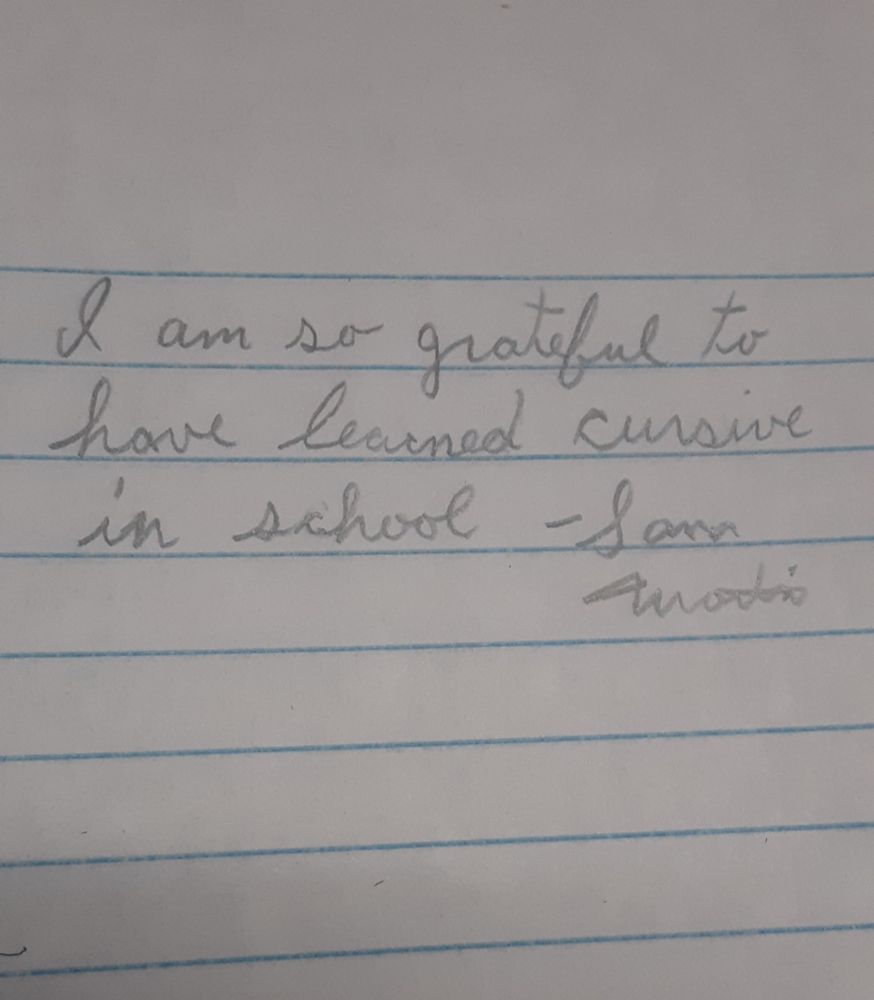 I am so grateful to
have learned cursive
in school - Sam